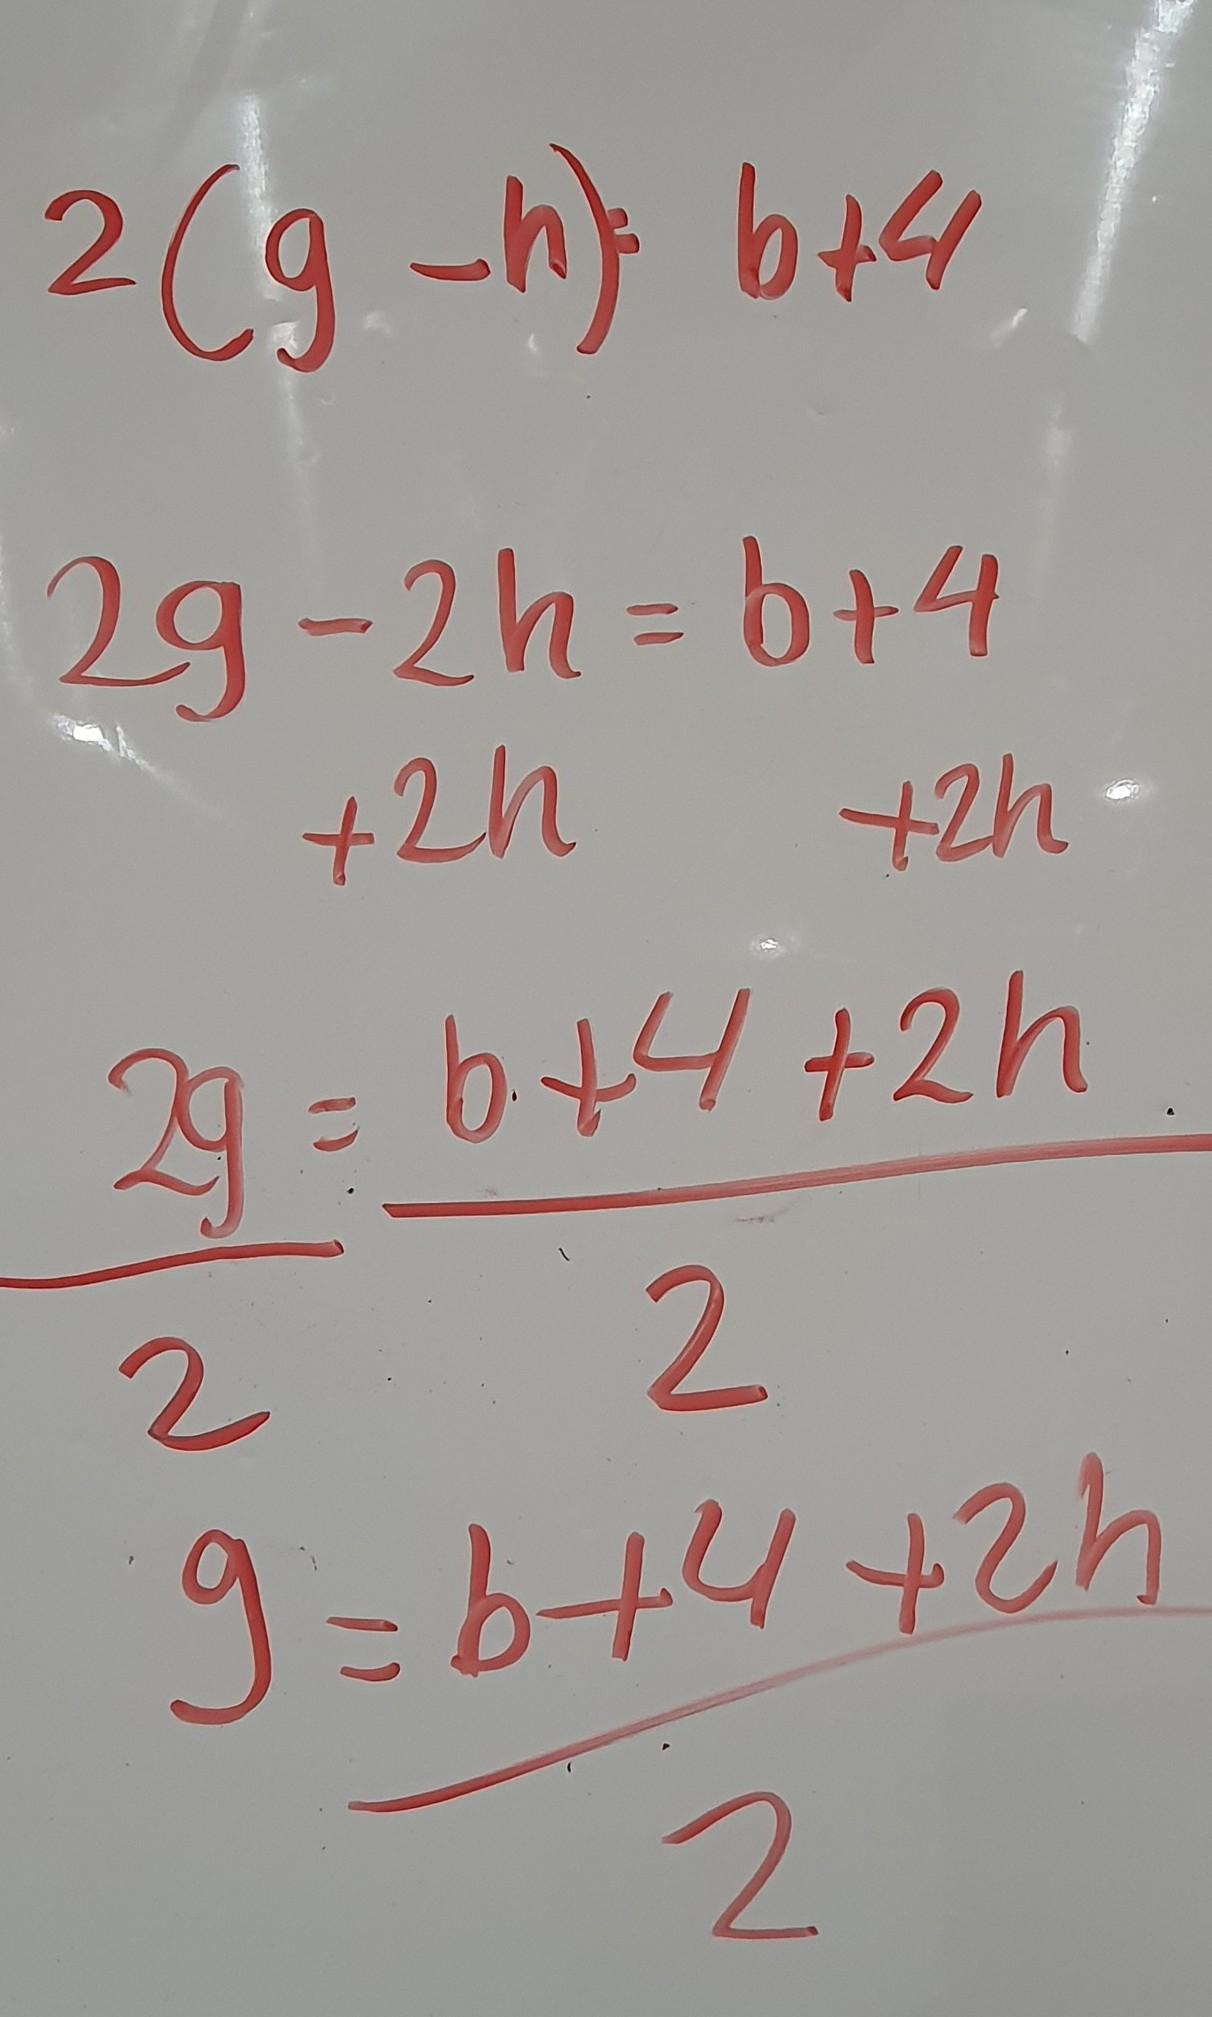 2(g - h) = b+4
2g - 2h = b+4
+2h +2h
2g = b+4 +2h
2 2
g = b+4 +2h
2